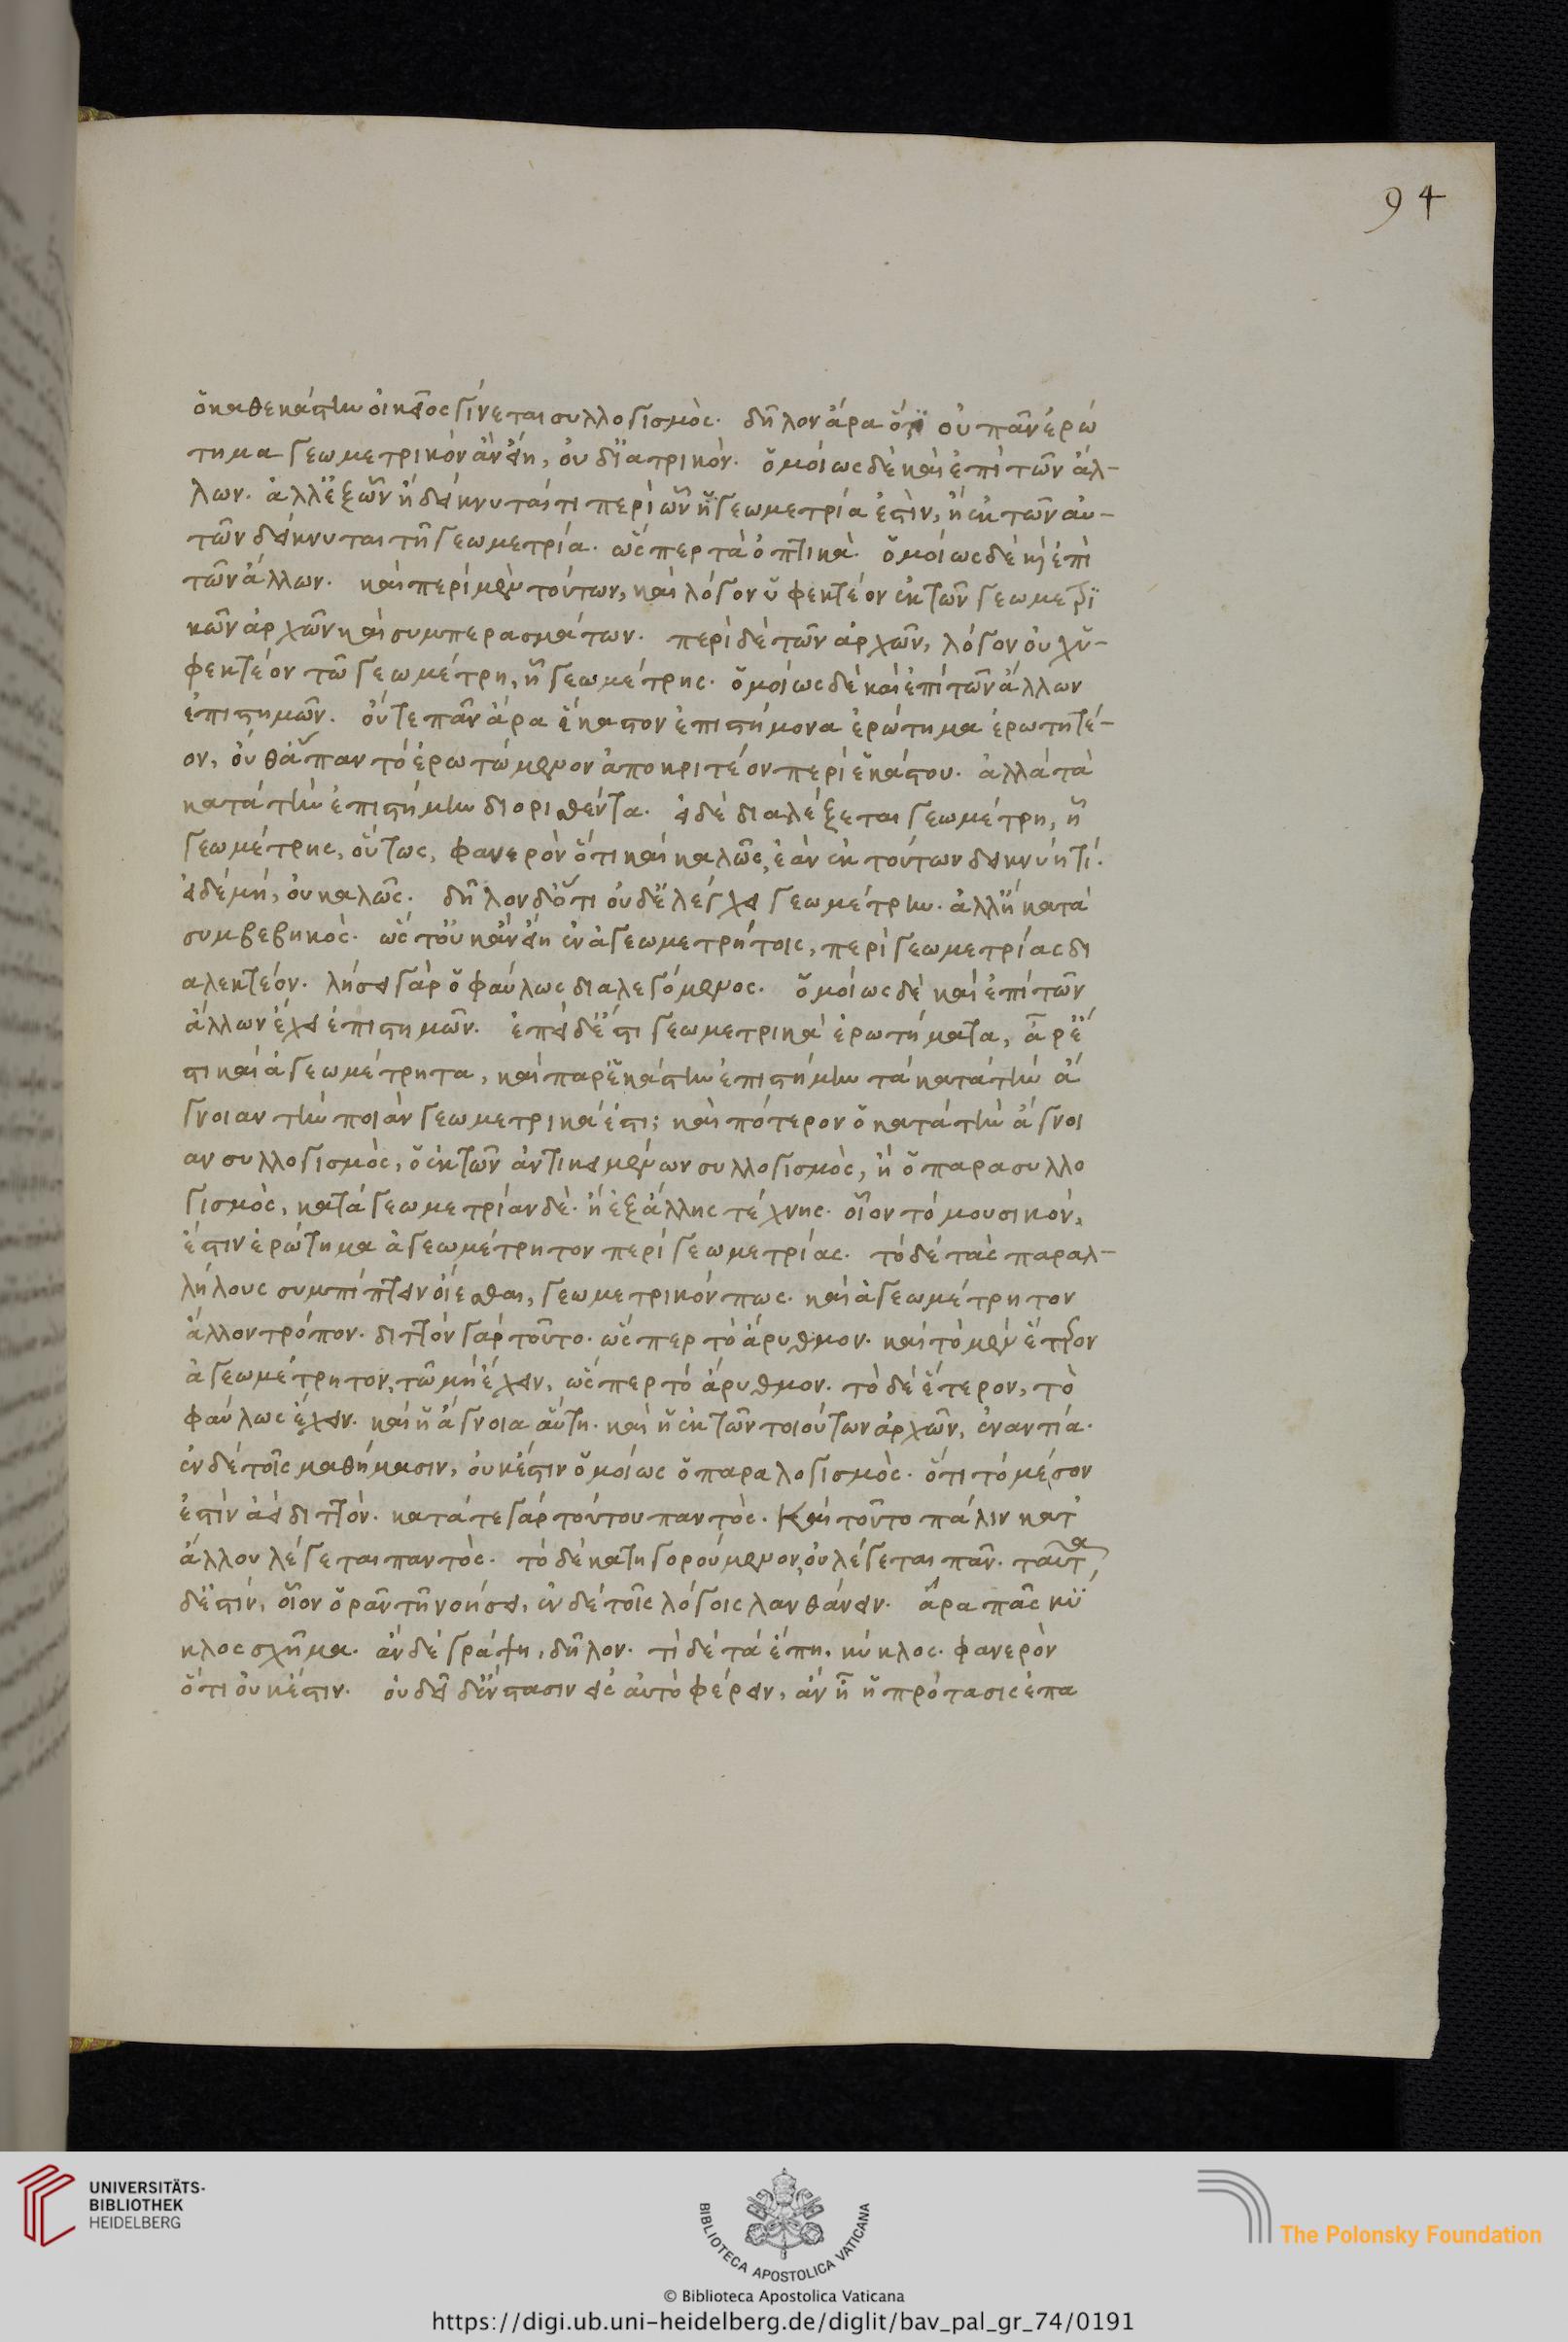 94
ὁ καθ' ἑκάστην οἰκεῖος γίνεται συλλογισμὸς· δῆλον ἄρα ὅτι οὐ πᾶν ἐρώ
τημα γεωμετρικὸν ἂν εἴη, οὐδ' ἰατρικὸν· ὁμοίως δὲ καὶ ἐπὶ τῶν ἄλ-
λων· ἀλλ' ἐξ ὧν ἢ δείκνυταί τι περὶ ὧν ἡ γεωμετρία ἐστὶν, ἢ ἐκ τῶν αὐ-
τῶν δείκνυται τῇ γεωμετρία· ὥσπερ τὰ ὀπτικὰ· ὁμοίως δὲ κ(αὶ) ἐπὶ
τῶν ἄλλων· καὶ περὶ μὲν τούτων, καὶ λόγον ὑφεκτέον ἐκ τῶν γεωμετρι
κῶν ἀρχῶν καὶ συμπερασμάτων· περὶ δὲ τῶν ἀρχῶν, λόγον οὐχ ὑ-
φεκτέον τῶ γεωμέτρη, ἧ γεωμέτρης· ὁμοίως δὲ καὶ ἐπὶ τῶν ἄλλων
ἐπιστημῶν· οὔτε πᾶν ἄρα ἕκαστον ἐπιστήμονα ἐρώτημα ἐρωτητέ-
ον, οὔθ' ἅπαν τὸ ἐρωτώμενον ἀποκριτέον περὶ ἑκάστου· ἀλλὰ τὰ
κατὰ τὴν ἐπιστήμην διορισθέντα· εἰ δὲ διαλέξεται γεωμέτρη, ἧ
γεωμέτρης, οὕτως, φανερὸν ὅτι καὶ καλῶς, ἐὰν ἐκ τούτων δεικνύη τί·
εἰ δὲ μή, οὐ καλῶς· δῆλον δ' ὅτι οὐδ' ἐλέγχει γεωμέτρην· ἀλλ' ἢ κατὰ
συμβεβηκὸς· ὥστ' οὐκ ἂν εἴη ἐν ἀγεωμετρήτοις, περὶ γεωμετρίας δι
αλεκτέον· λήσει γὰρ ὁ φαύλως διαλεγόμενος· ὁμοίως δὲ καὶ ἐπὶ τῶν
ἄλλων ἔχει ἐπιστημῶν· ἐπεὶ δ' ἔστι γεωμετρικὰ ἐρωτήματα, ἆρ' ἔ
στι καὶ ἀγεωμέτρητα, καὶ παρ' ἑκάστην ἐπιστήμην τὰ κατὰ τὴν ἄ
γνοιαν τὴν ποιὰν γεωμετρικά ἐστι; καὶ πότερον ὁ κατὰ τὴν ἄγνοι
αν συλλογισμὸς, ὁ ἐκ τῶν ἀντικειμένων συλλογισμὸς, ἢ ὁ παρασυλλο
γισμὸς, κατὰ γεωμετρίαν δὲ· ἢ ἐξ ἄλλης τέχνης· οἷον τὸ μουσικόν,
ἐστὶν ἐρώτημα ἀγεωμέτρητον περὶ γεωμετρίας· τὸ δὲ τὰς παραλ-
λήλους συμπίπτειν οἴεσθαι, γεωμετρικόν πως· καὶ ἀγεωμέτρητον
ἄλλον τρόπον· διττὸν γὰρ τοῦτο· ὥσπερ τὸ ἄρυθμον· καὶ τὸ μὲν ἕτερον
ἀγεωμέτρητον, τῶ μὴ ἔχειν, ὥσπερ τὸ ἄρυθμον· τὸ δὲ ἕτερον, τὸ
φαύλως ἔχειν· καὶ ἡ ἄγνοια αὕτη· καὶ ἡ ἐκ τῶν τοιούτων ἀρχῶν, ἐναντία·
ἐν δὲ τοῖς μαθήμασιν, οὐκ ἔστιν ὁμοίως ὁ παραλογισμὸς· ὅτι τὸ μέσον
ἐστὶν ἀεὶ διττόν· κατά τε γὰρ τούτου παντὸς· Καὶ τοῦτο πάλιν κατ'
ἄλλου λέγεται παντὸς· τὸ δὲ κατηγορούμενον, οὐ λέγεται πᾶν· ταῦτα
δ' ἐστὶν, οἷον ὁρᾶν τῇ νοήσει, ἐν δὲ τοῖς λόγοις λανθάνειν· ἆρα πᾶς κύ
κλος σχῆμα· ἂν δὲ γράψη, δῆλον· τί δὲ τὰ ἔπη, κύκλος· φανερὸν
ὅτι οὐκ ἔστιν· οὐ δεῖ δ' ἔνστασιν εἰς αὐτὸ φέρειν, ἂν ἦ ἡ πρότασις ἐπα
UNIVERSITÄTS-
BIBLIOTHEK
HEIDELBERG
BIBLIOTECA APOSTOLICA VATICANA
The Polonsky Foundation
© Biblioteca Apostolica Vaticana
https://digi.ub.uni-heidelberg.de/diglit/bav_pal_gr_74/0191